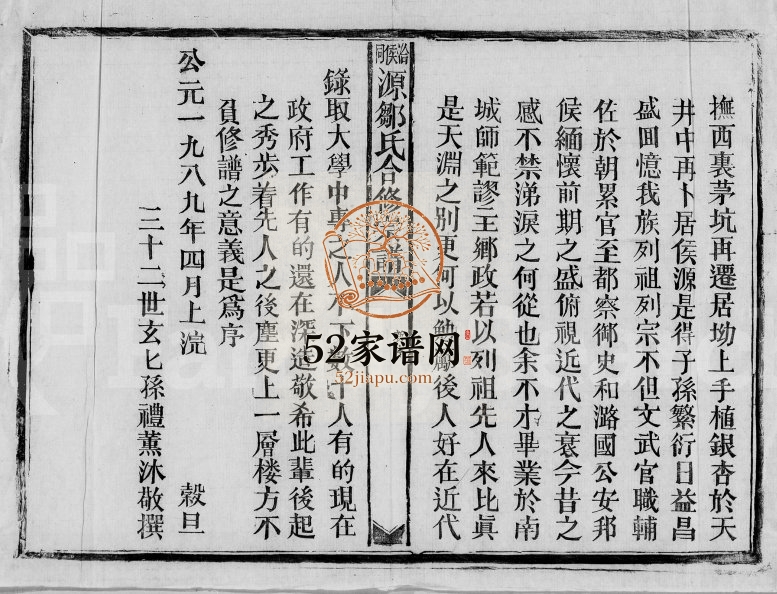 撫西裏茅坑再遷居坳上手植銀杏於天
井中再卜居侯源是得子孫繁衍日益昌
盛囬憶我族列祖列宗不但文武官職輔
佐於朝累官至都察御史和潞國公安邦
侯緬懷前期之盛俯視近代之衰今昔之
感不禁涕淚之何從也余不才畢業於南
城師範謬主鄉政若以列祖先人來比眞
是天淵之別更何以勉勵後人好在近代
侯源鄒氏合修宗譜
錄取大學中專之人不下數十人有的現在
政府工作有的還在深造敬希此輩後起
之秀步着先人之後塵更上一層楼方不
負修譜之意義是爲序
公元一九八九年四月上浣 穀旦
三十二世玄七孫禮薰沐敬撰
52家谱网
52jiapu.com